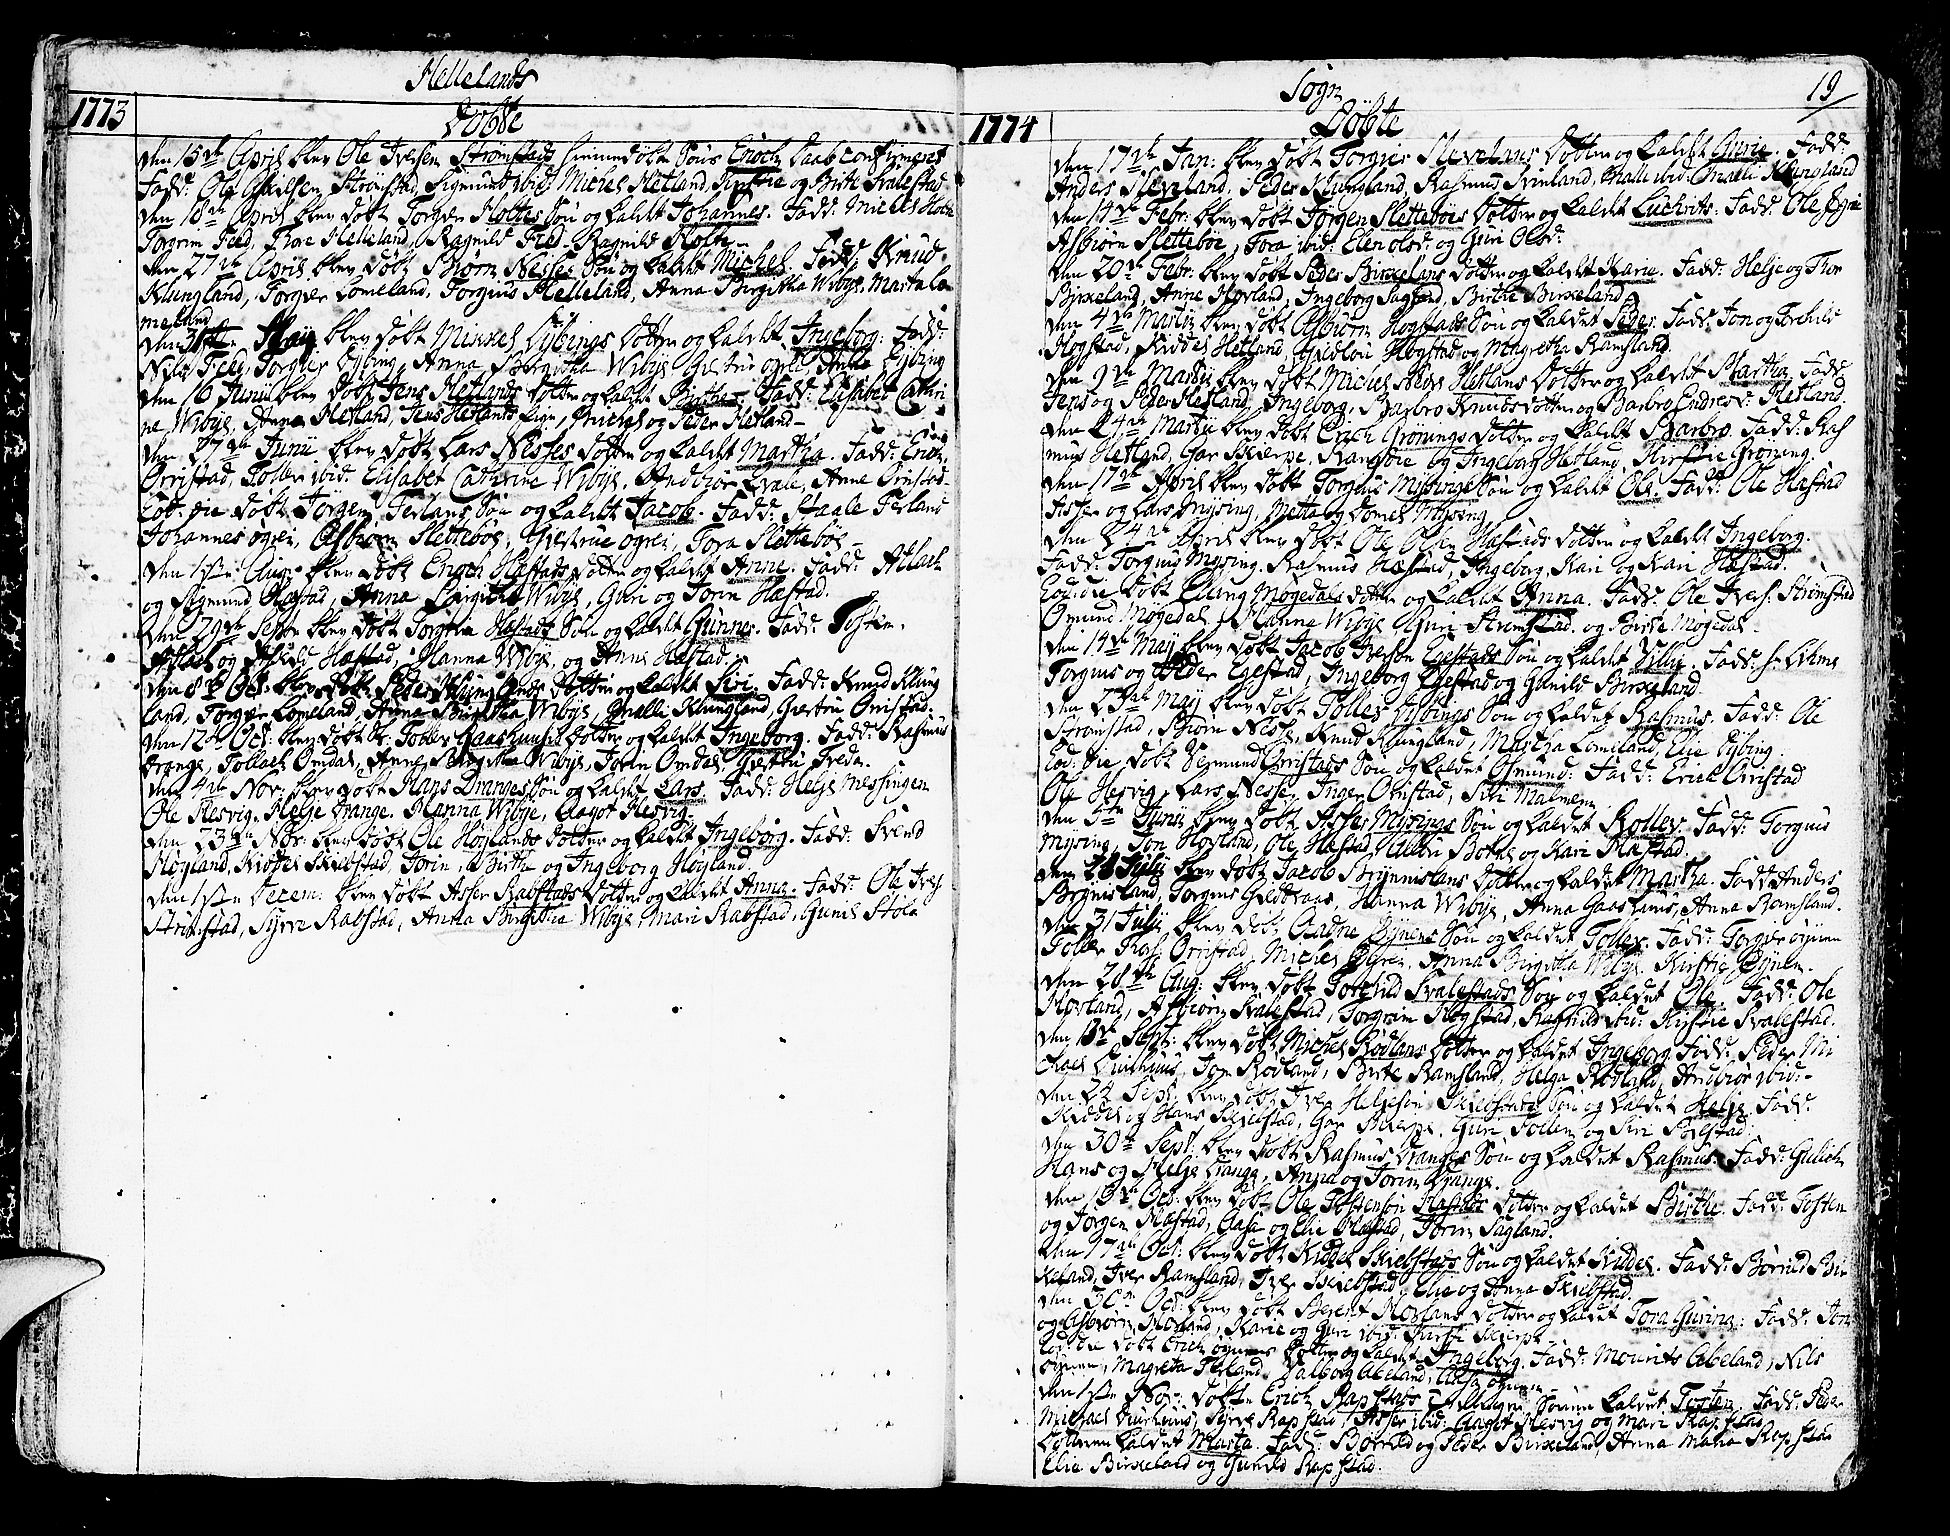 Hellelands
1773
Döbte
Den 15de April blev Ole Iversen Strömstads hiemmedöbt Söns Enoch Daab confirmeret
Fadd: Ole Askilsen Strömstad, Sigmund ibid: Michel Hetland, Kirstie og Birte Svalestad
Den 18de April blev döbt Torgier Holtes Sön og kaldt Johannes. Fadd: Michel Holte
Torgrim Feed, Thore Helleland, Ragnild Feed, Ragnild Holte
Den 27de April blev döbt Biörn Nesses Sön og kaldt Michel. Fadd: Knud
Klungland, Torgier Lomeland, Torgius Helleland, Anna Birgitha Wibye, Marta Lo
meland
Den 31te May blev döbt Mickel Eybings Dotter og kaldt Ingeborg. Fadd:
Nils Feed, Torgier Eybing, Anna Birgitha Wibye, Giertru Anna Eybing
Den 16 Junii blev döbt Jens Hetlands Dotter og kaldt Birthe. Fadd: Elisabet Cathri
ne Wibye, Anna Hetland, Jens Hetlands Michel og Peder Hetland
Den 27de Junii blev döbt Lars Nesses Dotter og kaldt Martha. Fadd: Erich
Orrestad, Tolle ibid. Elisabet Cathrine Wibye, Andbior Anne Orrestad
Eod: die döbt Jörgen Terlans Sön og kaldt Jacob. Fadd: Staale Terland
Johannes Ögren, Asbiörn Sletteböe, Giertrue Ögren, Tora Slettebö
Den 1ste Aug: blev döbt Enoch Hæstads Dotter og kaldt Anne. Fadd: Atlach
og Sigmund Hæstad, Anna Birgitha Wibye, Guri og Torin Hæstad.
Den 29de Sept: blev döbt Torgrim Hæstads Sön og kaldt Gunner. Fadd: Tosten,
og Hæstad, Hanna Wibye, og Anne Hæstad.
Den 8de Oct: blev döbt Peder Klunglands Dotter og kaldt Siri. Fadd: Knud Klung
land, Torgier Lomeland, Anna Birgitha Wibye, Malli Klungland, Giertru Orrestad.
Den 12te Oct: blev döbt Tobias Gaashuuses Dotter og kaldt Ingeborg. Fadd: Rasmus
Drange, Tollach Omdal, Anne Birgitha Wibye, Torin Omdal, Giertru Treda.
Den 4de Nov: blev döbt Hans Dranges Sön og kaldt Lars. Fadd: Helje Messingen
Ole Hesvig, Helje Drange, Hanna Wibye, Aagot Hesvig
Den 23de Nov: blev döbt Ole Höylands Dotter og kaldt Ingeborg. Fadd: Svend
Höyland, Kiddel Skiebstad, Torin, Birthe og Ingeborg Höyland.
Den 1ste Decem: blev döbt Asser Rabstads Dotter og kaldt Anna. Fadd: Ole Ivers:
Strömstad, Syvre Rabstad, Anna Birgitha Wibye, Mari Rabstad, Gunild Stöle
Sogn
19
1774
Döbte
Den 17de Jan: blev döbt Torgier Slevelans Dotter og kaldt Gurie. Fadd:
Anders Sleveland, Peder Klungland, Rasmus Svinland, Malli ibid: Malli Klungland
Den 14de Febr: blev döbt Jörgen Sletteböes Dotter og kaldt Luchrits. Fadd: Ole
Asbiörn Sletteböe, Tora ibid: Elen Olsd: og Guri Olsd:
Den 20de Febr: blev döbt Peder Birkelans Dotter og kaldt Karie. Fadd: Helje og Thor
Birkeland, Anne Hovland, Ingeborg Sagland, Birthe Birkeland
Den 4de Martii blev döbt Asbiörn Hogstads Sön og kaldet Peder. Fadd: Jon og Torchild
Hogstad, Kiddel Hetland, Gudlou Hogstad og Magretha Ramsland.
Den 9de Martii blev döbt Michel Nedre Hetlans Dotter og kaldt Martha. Fadd:
Jens og Peder Hetland, Ingeborg, Barbro Knudsdotter og Barbro Endresd: Hetland.
Den 24de Martii blev döbt Erich Grönings Dotter og kaldt Barbro. Fadd: Ras
mus Hetland, Gar Skierpe, Ranghie og Ingeborg Hetland, Kirstie Gröning.
Den 17de April blev döbt Torgius Mysings Sön og kaldt Ole. Fadd: Ole Hæstad
Asser og Lars Mysing, Metta og Mysing
Den 24de April blev döbt Ole Olsen Hæstads Dotter og kaldt Ingeborg.
Fadd: Torgius Mysing, Rasmus Hæstad, Ingeborg, Kari og Kari Hæstad.
Eod: die döbt Elling Mögedals Dotter og kaldt Anna. Fadd: Ole Ivers: Strömstad
Omund Mögedal, Hanna Wibye, Guri Strömstad, og Birte Mögedal
Den 14de May blev döbt Jacob Iversen Egestads Sön og kaldt Villu. Fadd:
Torgius og Peder Egestad, Ingeborg Egestad og Gunild Birkeland.
Den 23de May blev döbt Tolles Eybings Sön og kaldet Rasmus. Fadd: Ole
Strömstad, Biörn Nesse, Knud Klungland, Martha Lomeland, Elie Eybing.
Eod: die döbt Sigmund Orrestads Sön og kaldet Osmund. Fadd: Erich Orrestad
Ole Hesvig, Lars Nesse, Inger Orrestad, Siri Malmein
Den 5te Junii blev döbt Asser Mysings Sön og kaldet Rollev. Fadd: Torgius
Mysing, Jon Hovland, Ole Hæstad, og Kari Hæstad.
Den 21 July blev döbt Jacob Brynnislans Dotter og kaldet Martha. Fadd: Anders
Brynnisland, Torgius Gieldtraas, Hanna Wibye, Anna Gaashuus, Anna Ramsland.
Den 31 July blev döbt Aadne Öynens Sön og kaldet Tollev. Fadd: Torgier Öynen
Tolle Ras: Orrestad, Michel Ögren, Anna Birgitha Wibye, Kirstie Öynen.
Den 28de Aug: blev döbt Torchild Svalestads Sön og kaldet Ole. Fadd: Ole
Hovland, Asbiörn Svalestad, Torgrim Hogstad, Ragnild ibid: Kirstie Svalestad.
Den 13de Sept: blev döbt Michel Rödlans Dotter og kaldet Ingeborg. Fadd: Peder Mi
chael Duehuus, Jon Rödland, Birte Ramsland, Helga Rödland, Andbiör ibid:
Den 22 Sept: blev döbt Iver Heljesön Skiebstads Sön og kaldet Helje. Fadd:
Kiddel og Hans Skiebstad, Gar Skierpe, Guri Follen og Siri Skiebstad:
Den 30te Sept: blev döbt Rasmus Dranges Sön og kaldet Rasmus. Fadd: Gulich
Hans og Helje Drange, Anna og Torin Drange.
Den 13de Oct: blev döbt Ole Tostensön Hæstads Dotter og kaldet Birthe. Fadd: Tosten
og Jörgen Hæstad, Aase og Elie Hæstad, Torin Sagland.
Den 17de Oct: blev döbt Kiddel Skiebstads Sön og kaldet Kiddel. Fadd: Börrild Bir
keland, Iver Ramsland, Iver Skiebstad, Elie og Anna Skiebstad.
Den 30te Oct: blev döbt Berent Hovlans Dotter og kaldet Tora Gurina. Fadd: Jon
og Asbiörn Hovland, Karie og Guri ibid: Guri Skierpe
Eod: die döbt Erich Öynens Dotter og kaldet Ingeborg. Fadd: Mourits Abeland, Nils
Öynen, Magreta Terland, Valborg Abeland, Aasa Öynen
Den 1ste Nov: döbt Erich Rapstads Tvillinger Sönnen kaldet Tosten. Fadd: Peder
Michael Duehuus, Syvre Rapstad, Asser ibid: Aagot Hesvig og Mari Rapstad
Dotteren kaldet Marta. Fadd: Börrild og Peder Birkeland, Anna Maria Rapstad
Elie Birkeland og Gunild Rapstad.